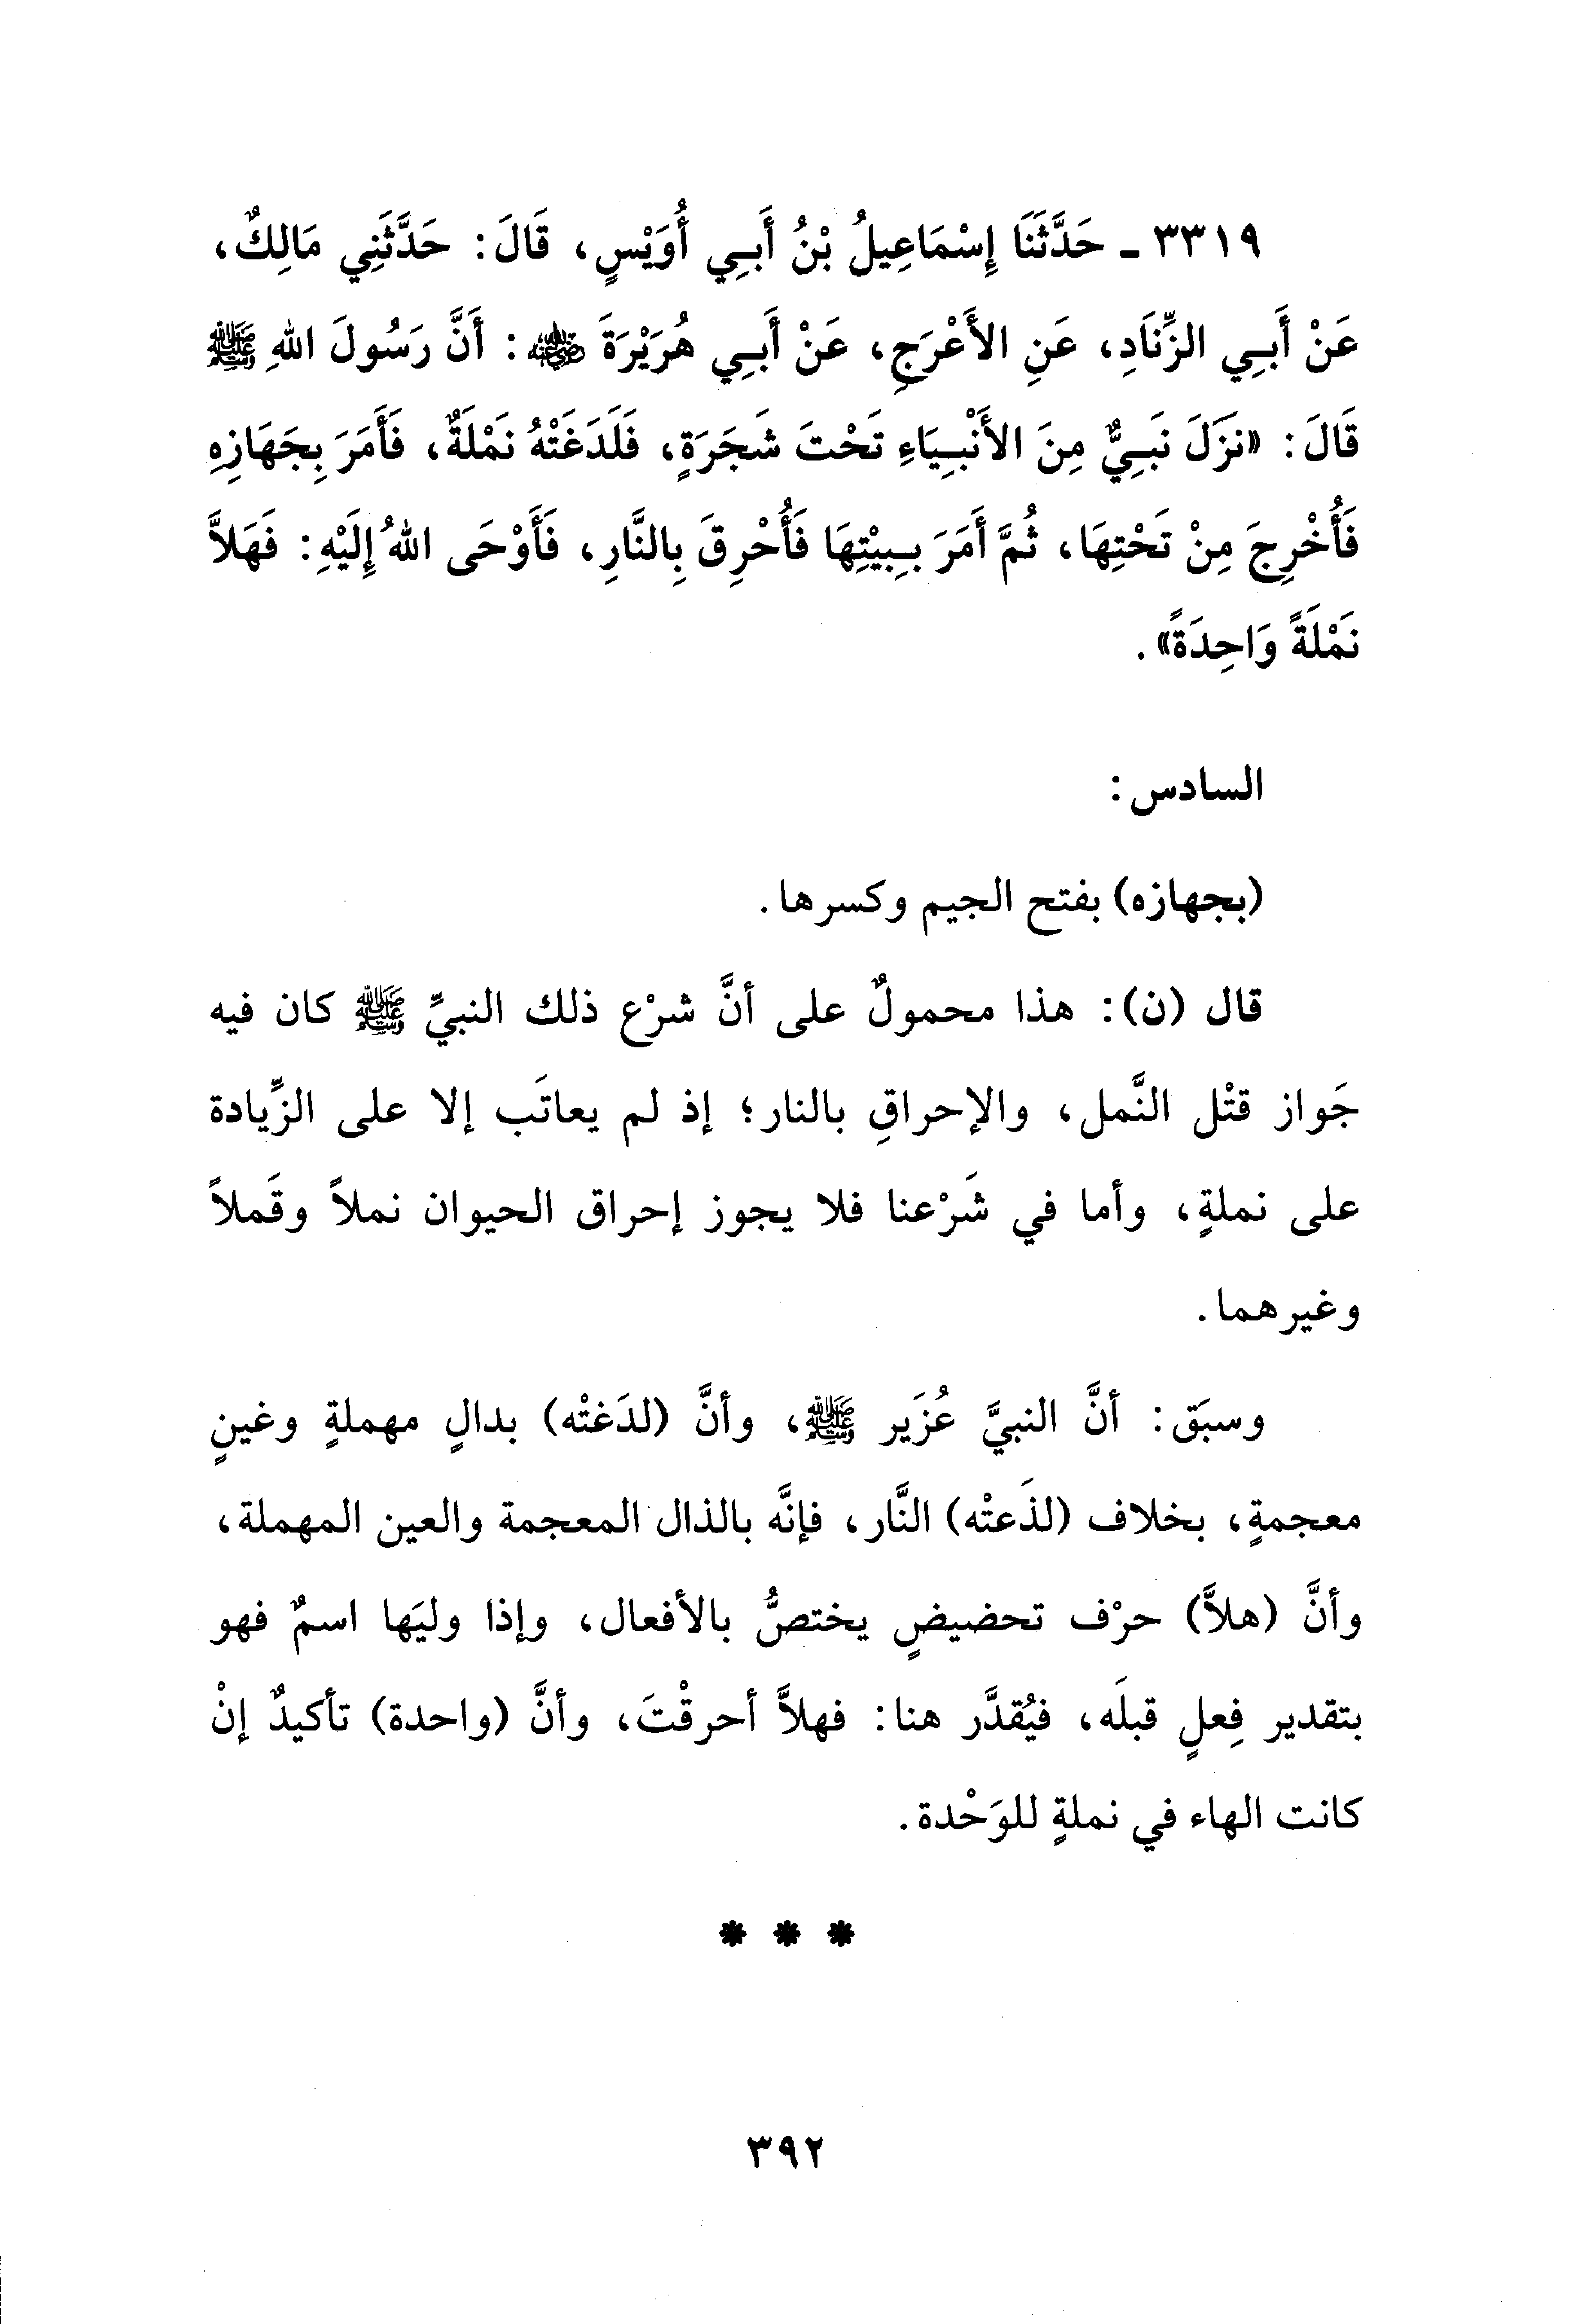 ٣٣١٩ ـ حَدَّثَنَا إِسْمَاعِيلُ بْنُ أَبِي أُوَيْسٍ، قَالَ: حَدَّثَنِي مَالِكٌ،
عَنْ أَبِي الزِّنَادِ، عَنِ الأَعْرَجِ، عَنْ أَبِي هُرَيْرَةَ ﵁: أَنَّ رَسُولَ اللهِ ﷺ
قَالَ: «نَزَلَ نَبِيٌّ مِنَ الأَنْبِيَاءِ تَحْتَ شَجَرَةٍ، فَلَدَغَتْهُ نَمْلَةٌ، فَأَمَرَ بِجَهَازِهِ
فَأُخْرِجَ مِنْ تَحْتِهَا، ثُمَّ أَمَرَ بِبِيْتِهَا فَأُحْرِقَ بِالنَّارِ، فَأَوْحَى اللهُ إِلَيْهِ: فَهَلاَّ
نَمْلَةً وَاحِدَةً».
السادس:
(بجهازه) بفتح الجيم وكسرها.
قال (ن): هذا محمولٌ على أنَّ شرْع ذلك النبيِّ ﷺ كان فيه
جَواز قتْل النَّمل، والإحراقِ بالنار؛ إذ لم يعاتَب إلا على الزِّيادة
على نملةٍ، وأما في شَرْعنا فلا يجوز إحراق الحيوان نملاً وقَملاً
وغيرهما.
وسبَق: أنَّ النبيَّ عُزَير ﷺ، وأنَّ (لدَغتْه) بدالٍ مهملةٍ وغينٍ
معجمةٍ، بخلاف (لذَعتْه) النَّار، فإنَّه بالذال المعجمة والعين المهملة،
وأنَّ (هلاَّ) حرْف تحضيضٍ يختصُّ بالأفعال، وإذا وليَها اسمٌ فهو
بتقدير فِعلٍ قبلَه، فيُقدَّر هنا: فهلاَّ أحرقْتَ، وأنَّ (واحدة) تأكيدٌ إنْ
كانت الهاء في نملةٍ للوَحْدة.
* * *
٣٩٢